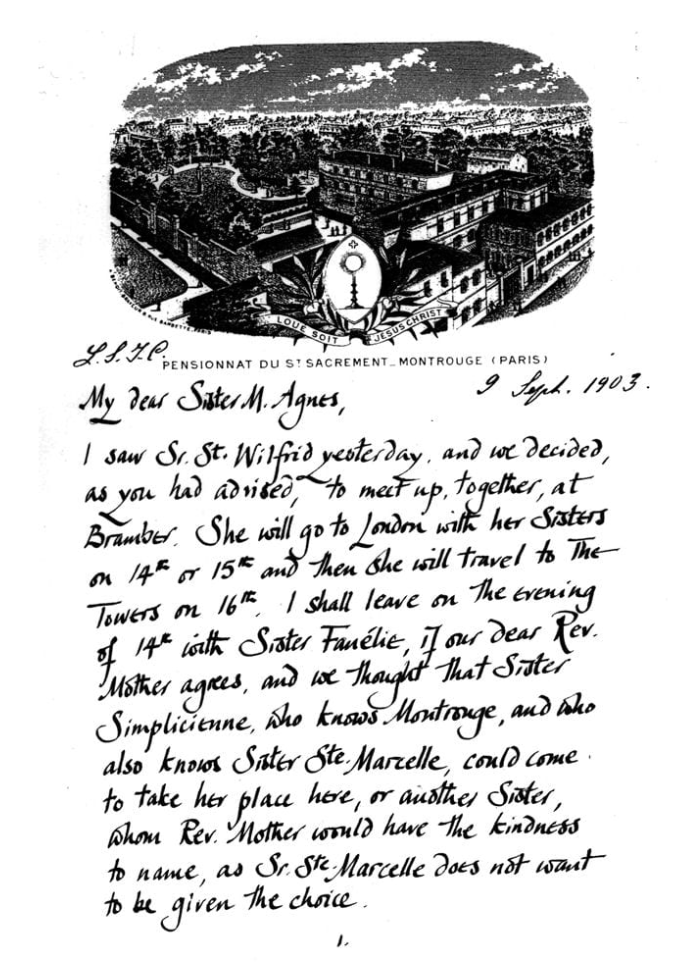 LOUÉ SOIT JÉSUS CHRIST
L.S.J.C.
PENSIONNAT DU ST SACREMENT_MONTROUGE (PARIS)
9 Sept. 1903.
My dear Sister M. Agnes,
I saw Sr. St. Wilfrid yesterday, and we decided,
as you had advised, to meet up, together, at
Bramber. She will go to London with her Sisters
on 14th or 15th and then she will travel to The
Towers on 16th. I shall leave on the evening
of 14th with Sister Fanélie, if our dear Rev.
Mother agrees, and we thought that Sister
Simplicienne, who knows Montrouge, and who
also knows Sister Ste. Marcelle, could come
to take her place here, or another Sister,
whom Rev. Mother would have the kindness
to name, as Sr. Ste. Marcelle does not want
to be given the choice.
1.